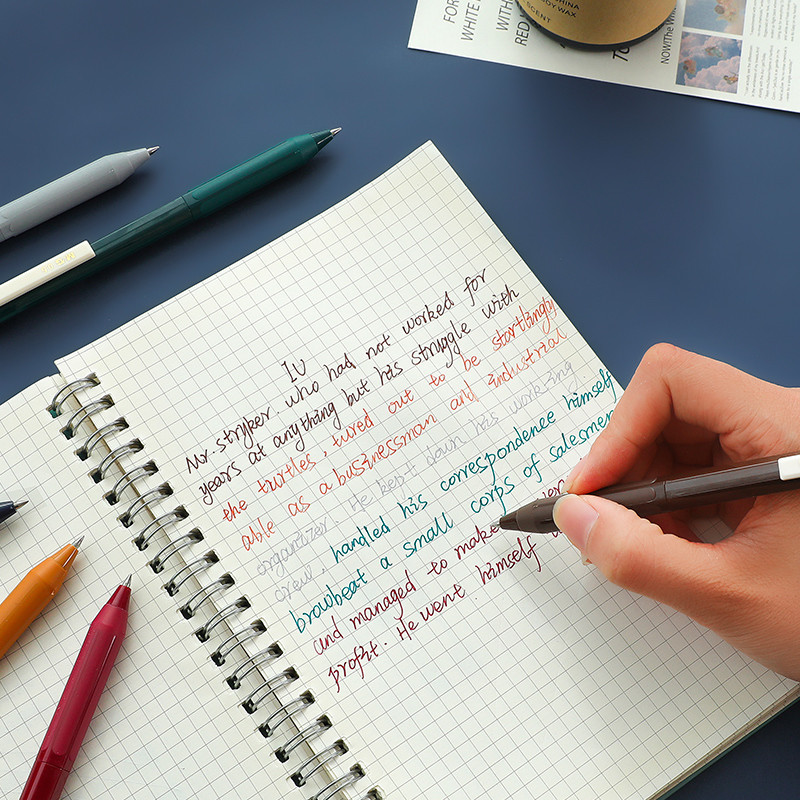 FOR
WHITE
WITH
RED
CHINA
BODY.WAX
SCENT
NOW!The W
IV
Mr.Stryker. who had not worked for
years at anything but his struggle with
the turtles, tured out to be startlingly
able as a businessman and industrial
organizer. He kept down his working
crew, handled his correspondence himself
browbeat a small corps of salesmen
and managed to make
profit. He went himself